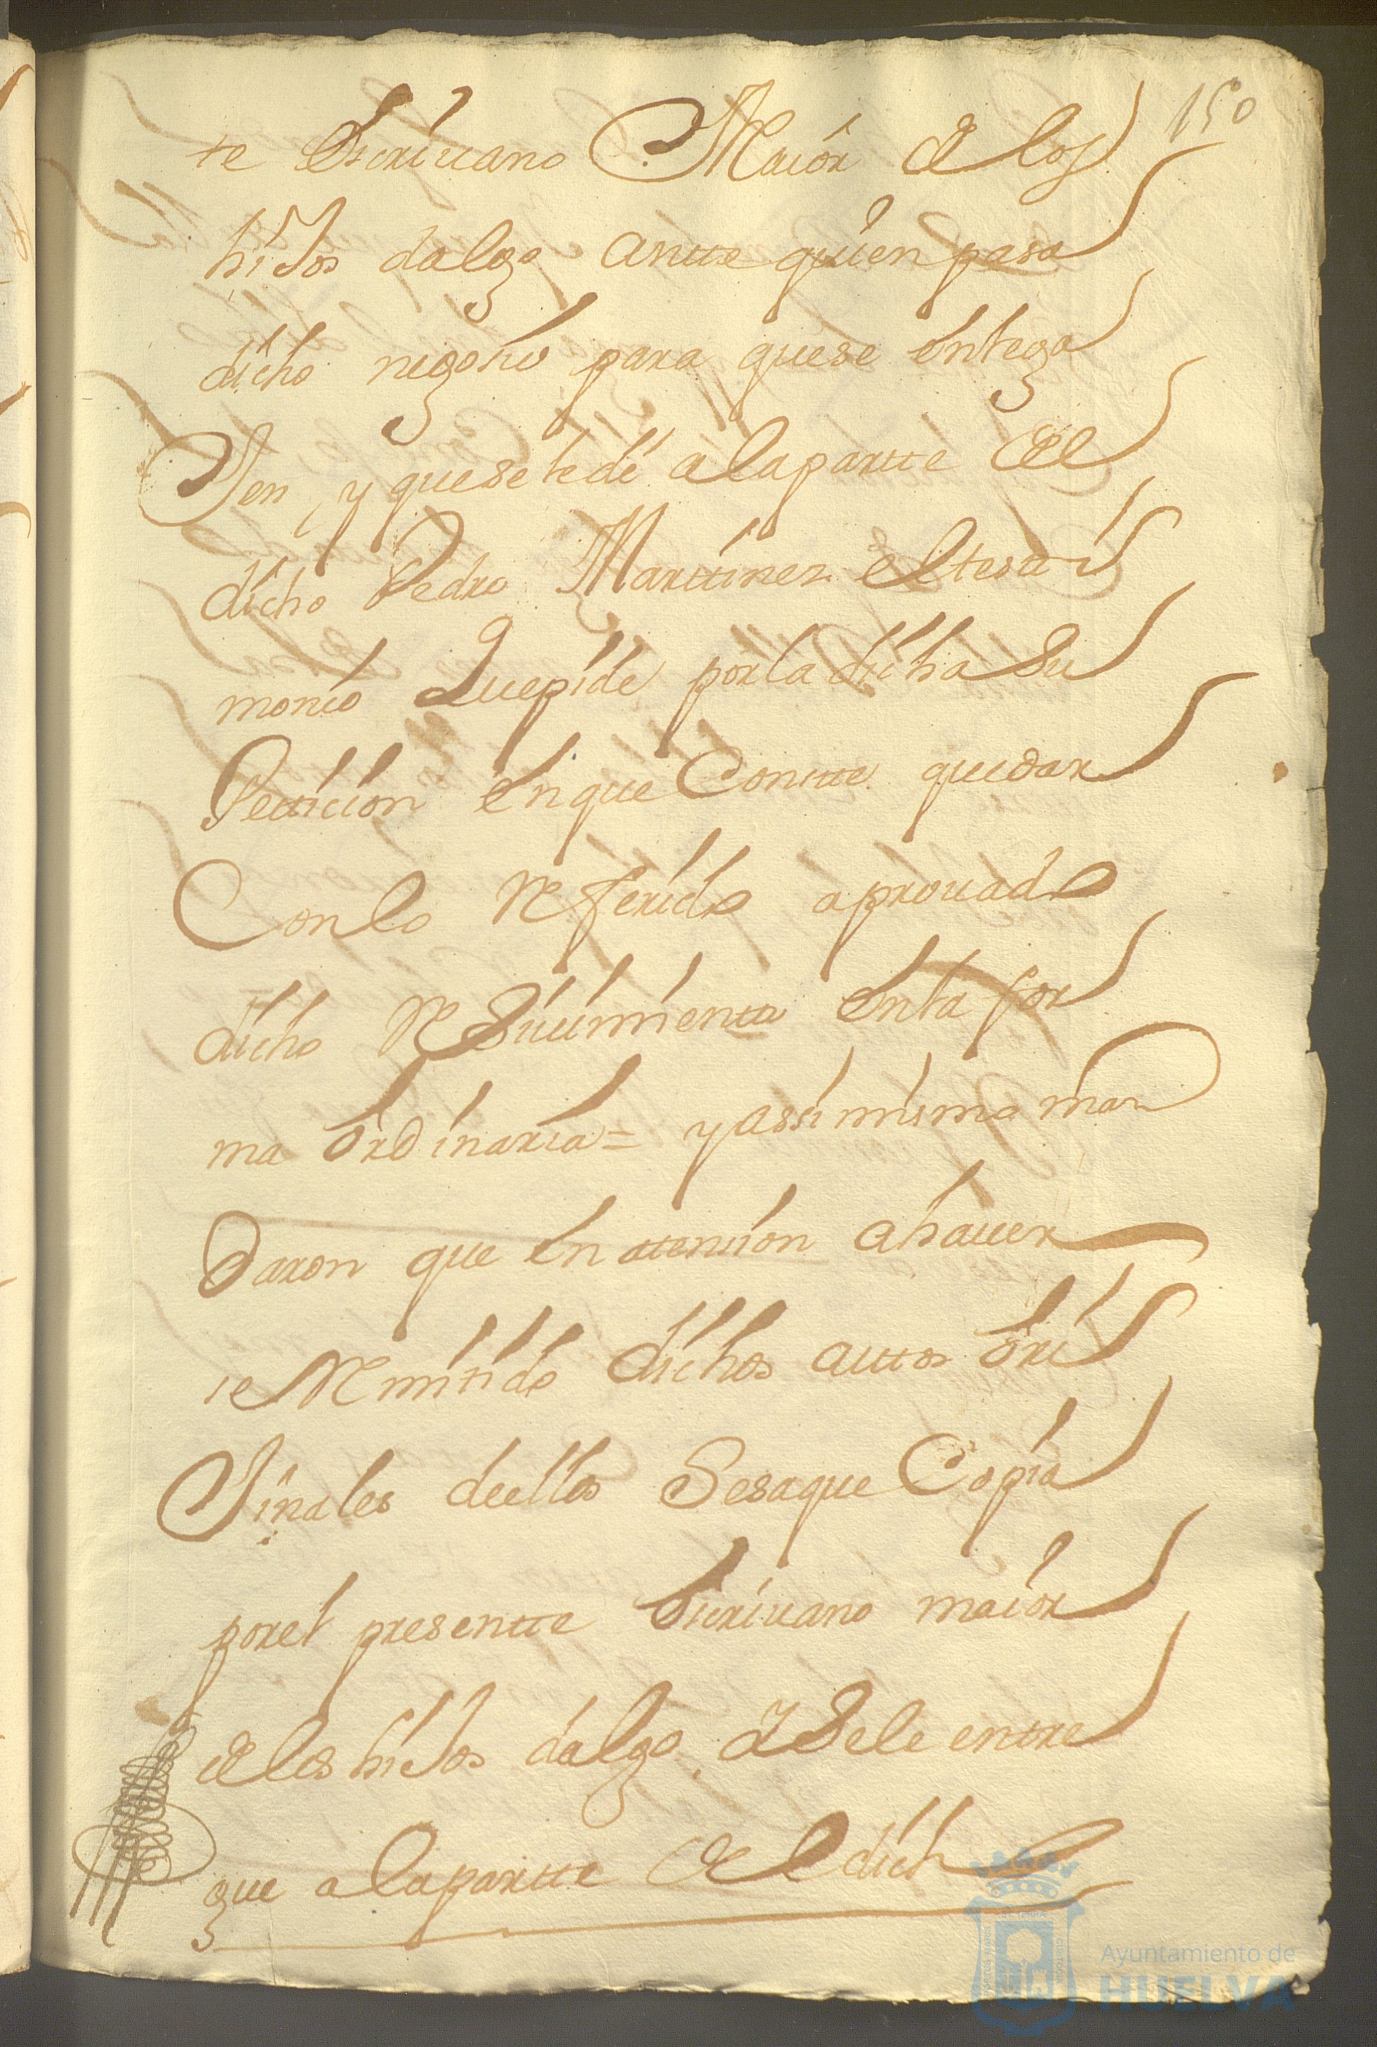 150
te Escriuano Maior de los
hiJos dalgo antte quien pasa
dicho negocio para que se entega
Jen, y que se le dé a la partte del
dicho Pedro Marttinez el testi
monio Que pide por la dicha Su
Petticion en que Constte quedar
Con lo Referido aprouado
dicho ReSiuimiento en la for
ma ordinaria = y assi mismo man
Daron que en attension a hauer
se Remitido dichos auttos ori
Jinales de ellos Se saque Copia
por el presentte Escriuano maior
de los hiJos dalgo y Se le entre
gue a la partte de el dicho
Ayuntamiento de
HUELVA